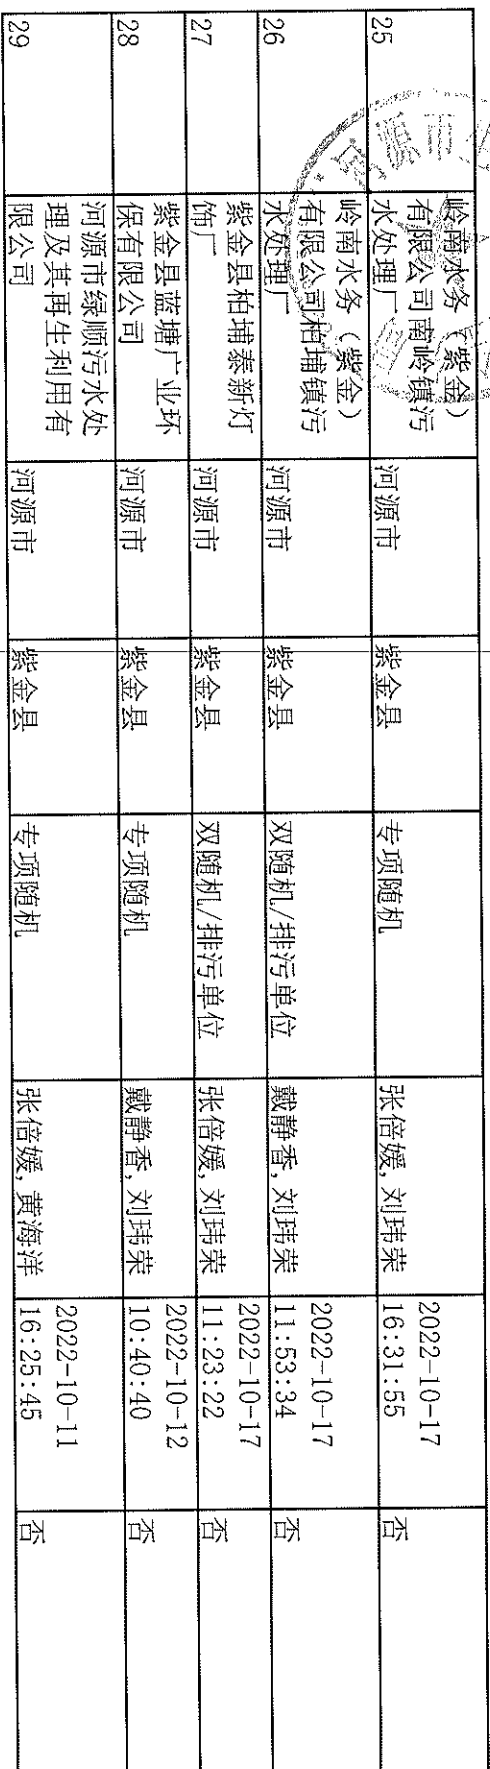 25
岭南水务（紫金）
有限公司南岭镇污
水处理厂
河源市
紫金县
专项随机
张倍媛,刘玮荣
2022-10-17
16:31:55
否
26
岭南水务（紫金）
有限公司柏埔镇污
水处理厂
河源市
紫金县
双随机/排污单位
戴静香,刘玮荣
2022-10-17
11:53:34
否
27
紫金县柏埔泰新灯
饰厂
河源市
紫金县
双随机/排污单位
张倍媛,刘玮荣
2022-10-17
11:23:22
否
28
紫金县蓝塘广业环
保有限公司
河源市
紫金县
专项随机
戴静香,刘玮荣
2022-10-12
10:40:40
否
29
河源市绿顺污水处
理及其再生利用有
限公司
河源市
紫金县
专项随机
张倍媛,黄海洋
2022-10-11
16:25:45
否
河源市